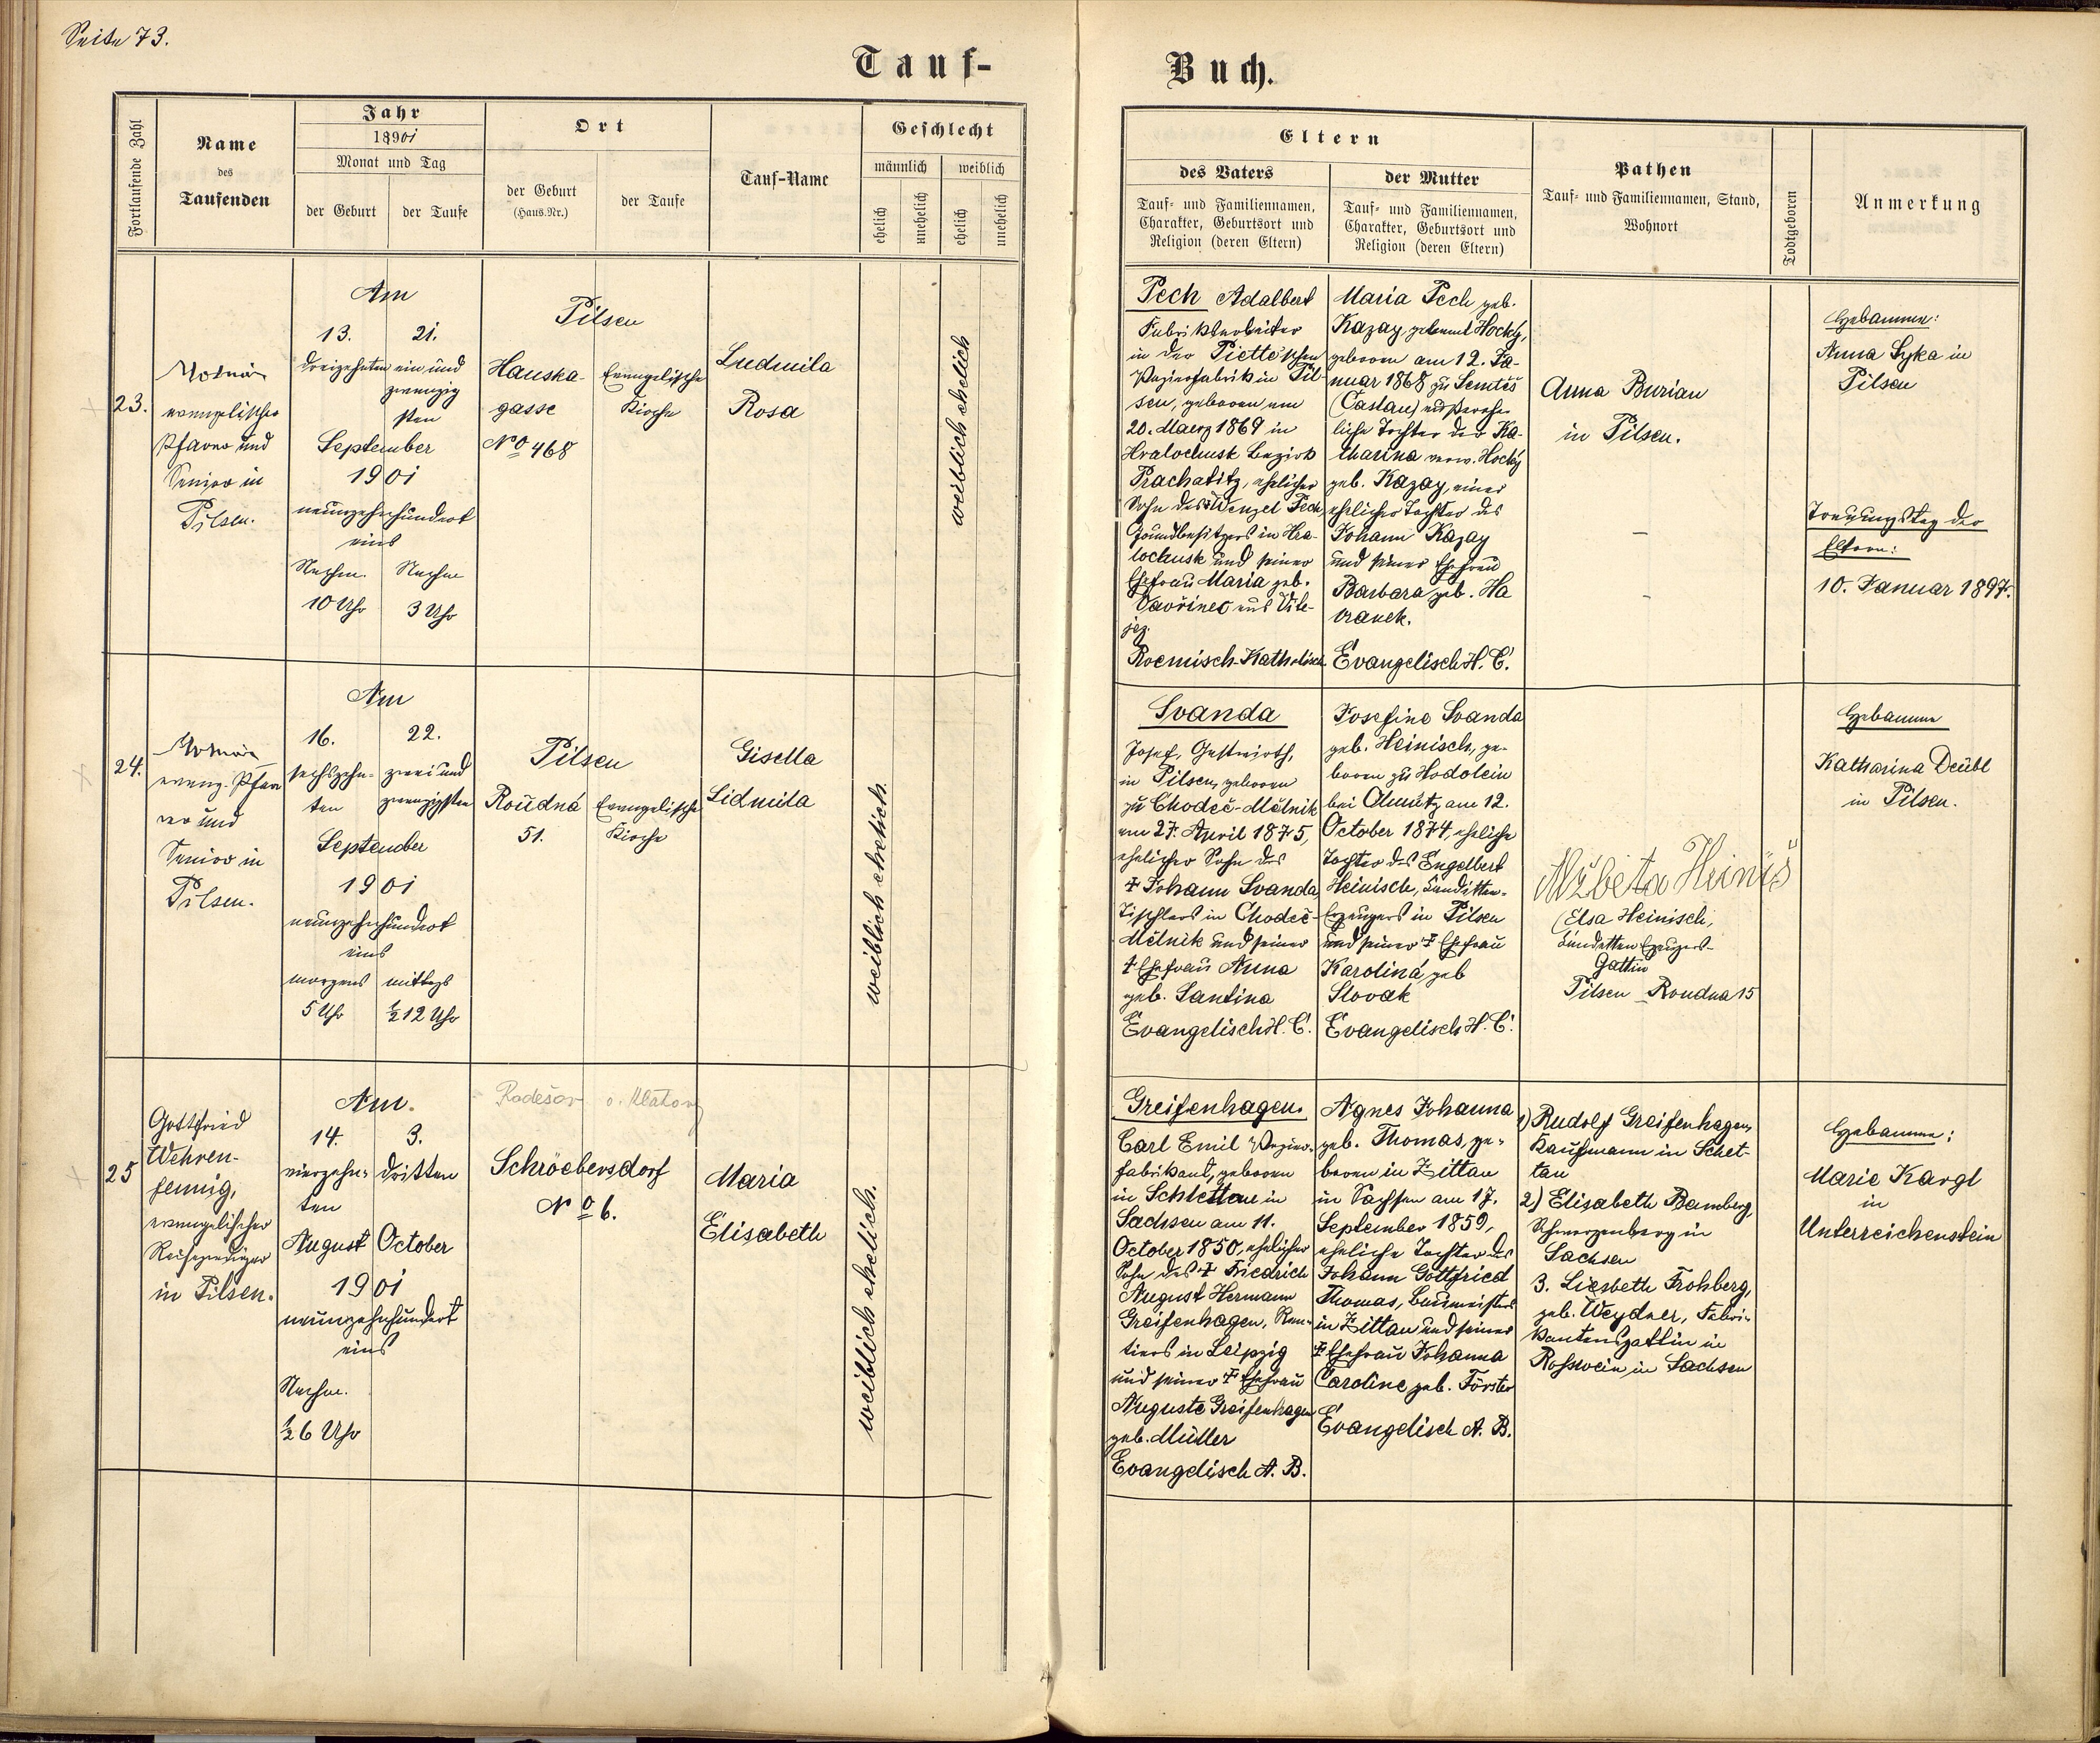 Seite 73.
Tauf-
Buch.
Fortlaufende Zahl
Name
des
Taufenden
Jahr
18901
Monat und Tag
der Geburt
der Taufe
Ort
der Geburt
(Haus-Nr.)
der Taufe
Tauf-Name
Geschlecht
männlich
weiblich
ehelich
unehelich
ehelich
unehelich
Eltern
des Vaters
Tauf- und Familiennamen,
Charakter, Geburtsort und
Religion (deren Eltern)
der Mutter
Tauf- und Familiennamen,
Charakter, Geburtsort und
Religion (deren Eltern)
Pathen
Tauf- und Familiennamen, Stand,
Wohnort
Todtgeboren
Anmerkung
23.
evangelischer
Pfarrer und
Senior in
Pilsen.
Am
13.
dreizehnten
21.
ein und
zwanzig
sten
September
1901
neunzehnhundert
eins
Nachm.
10 Uhr
Nachm
3 Uhr
Pilsen
Hauska-
gasse
No 468
Evangelische
Kirche
Ludmila
Rosa
weiblich ehelich
Pech Adalbert
Fabriksarbeiter
in der Piette'schen
Papierfabrik in Pil-
sen, geboren am
20. Maerz 1869 in
Hralochusk Bezirk
Prachatitz, ehelicher
Sohn des Wenzel Pech,
Grundbesitzers in Hra-
lochusk und seiner
Ehefrau Maria geb.
Vavřinec aus Vite-
jez.
Roemisch-Katholisch
Maria Pech geb.
Kazay, genannt Hocký,
geboren am 12. Ja-
nuar 1868 zu Semtěš
(Caslau) außerehe-
liche Tochter der Ka-
tharina verw. Hocký
geb. Kazay, einer
ehelicher Tochter des
Johann Kazay
und seiner Ehefrau
Barbara geb. Ha
vranek.
Evangelisch H. C.
Anna Burian
in Pilsen.
Hebamme:
Anna Syka in
Pilsen
Trauungstag der
Eltern:
10. Januar 1897.
24.
evang. Pfar
rer und
Senior in
Pilsen.
Am
16.
sechszehn-
ten
22.
zwei und
zwanzigsten
September
1901
neunzehnhundert
eins
morgens
5 Uhr
mittags
½ 12 Uhr
Pilsen
Roudná
51.
Evangelische
Kirche
Gisella
Lidmila
weiblich ehelich.
Svanda
Josef, Gastwirth,
in Pilsen, geboren
zu Chodeč-Mělnik
am 27. April 1875,
ehelicher Sohn des
† Johann Svanda,
Tischlers in Chodeč-
Mělnik und seiner
† Ehefrau Anna
geb. Santina
Evangelisch H. C.
Josefine Svanda
geb. Heinisch, ge-
boren zu Hodolein
bei Olmütz am 12.
October 1874, eheliche
Tochter des Engelbert
Heinisch, Canditten-
Erzeugers in Pilsen
und seiner † Ehefrau
Karolina geb
Slovak
Evangelisch H. C.
Alžbeta Heiniš
(Elsa Heinisch,
Canditten Erzeugers-
Gattin
Pilsen - Roudna 15
Hebamme
Katharina Deübl
in Pilsen.
25
Gottfried
Wehren-
fennig,
evangelischer
Reiseprediger
in Pilsen.
Am.
14.
vierzehn-
ten
August
3.
dritten
October
1901
neunzehnhundert
eins
Nachm.
½ 6 Uhr
Radešov o. Klatovy
Schröbersdorf
No 6.
Maria
Elisabeth
weiblich ehelich.
Greifenhagen.
Carl Emil Papier-
fabrikant, geboren
in Schlettau in
Sachsen am 11.
October 1850, ehelicher
Sohn des † Friedrich
August Hermann
Greifenhagen, Ren-
tiers in Leipzig
und seiner † Ehefrau
Auguste Greifenhagen
geb. Müller
Evangelisch A. B.
Agnes Johanna
geb. Thomas, ge-
boren in Zittau
in Sachsen am 17.
September 1859,
eheliche Tochter des
Johann Gottfried
Thomas, Baumeisters
in Zittau und seiner
† Ehefrau Johanna
Caroline geb. Förster
Evangelisch A. B.
1) Rudolf Greifenhagen,
Kaufmann in Schlet-
tau
2) Elisabeth Bamberg,
Schwarzenberg in
Sachsen
3. Liesbeth Frohberg,
geb. Weydner, Fabri-
kantensgattin in
Rosswein in Sachsen
Hebamme:
Marie Kargl
in
Unterreichenstein